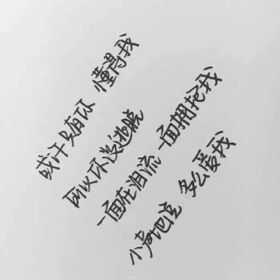 或许只有你 懂得我
所以你没逃脱
一面在泪流 一面拥抱我
小声地说 多么爱我